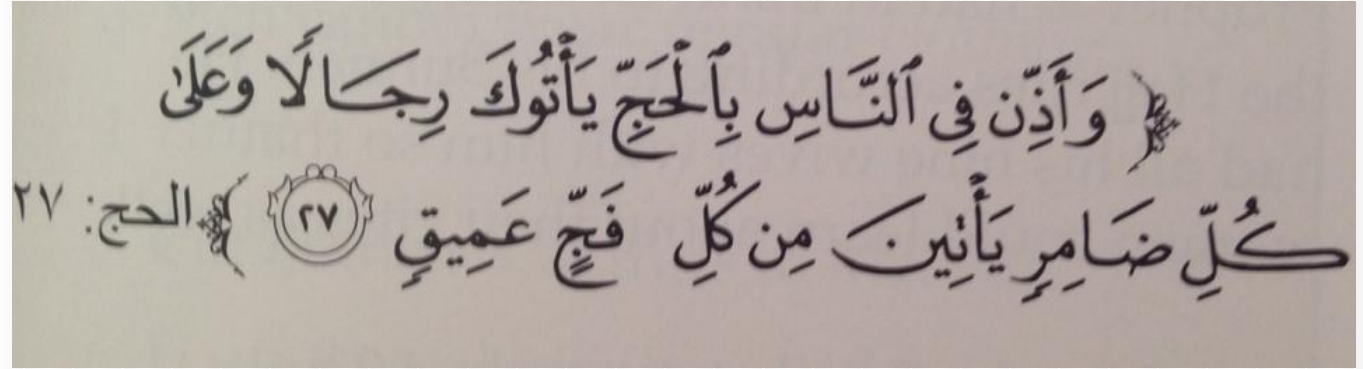 ﴿ وَأَذِّن فِي ٱلنَّاسِ بِٱلْحَجِّ يَأْتُوكَ رِجَالًا وَعَلَىٰ
كُلِّ ضَامِرٍ يَأْتِينَ مِن كُلِّ فَجٍّ عَمِيقٍ ٢٧ ﴾ الحج: ٢٧